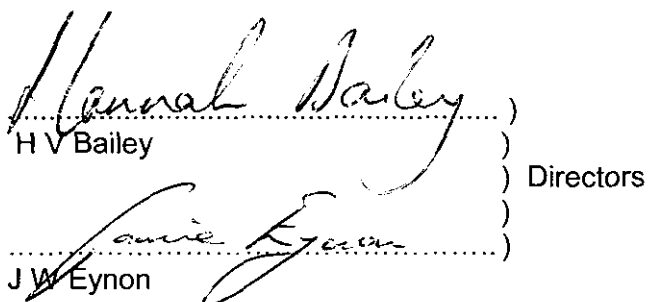 Hannah Bailey
........................................................ )
H V Bailey )
) Directors
)
Jamie Eynon
........................................................ )
J W Eynon